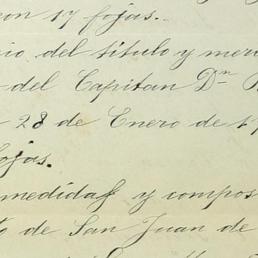 con 17 fojas.
del título y mer
del Capitan Dn
28 de Enero de 17
fojas.
medidas y compos
de San Juan de